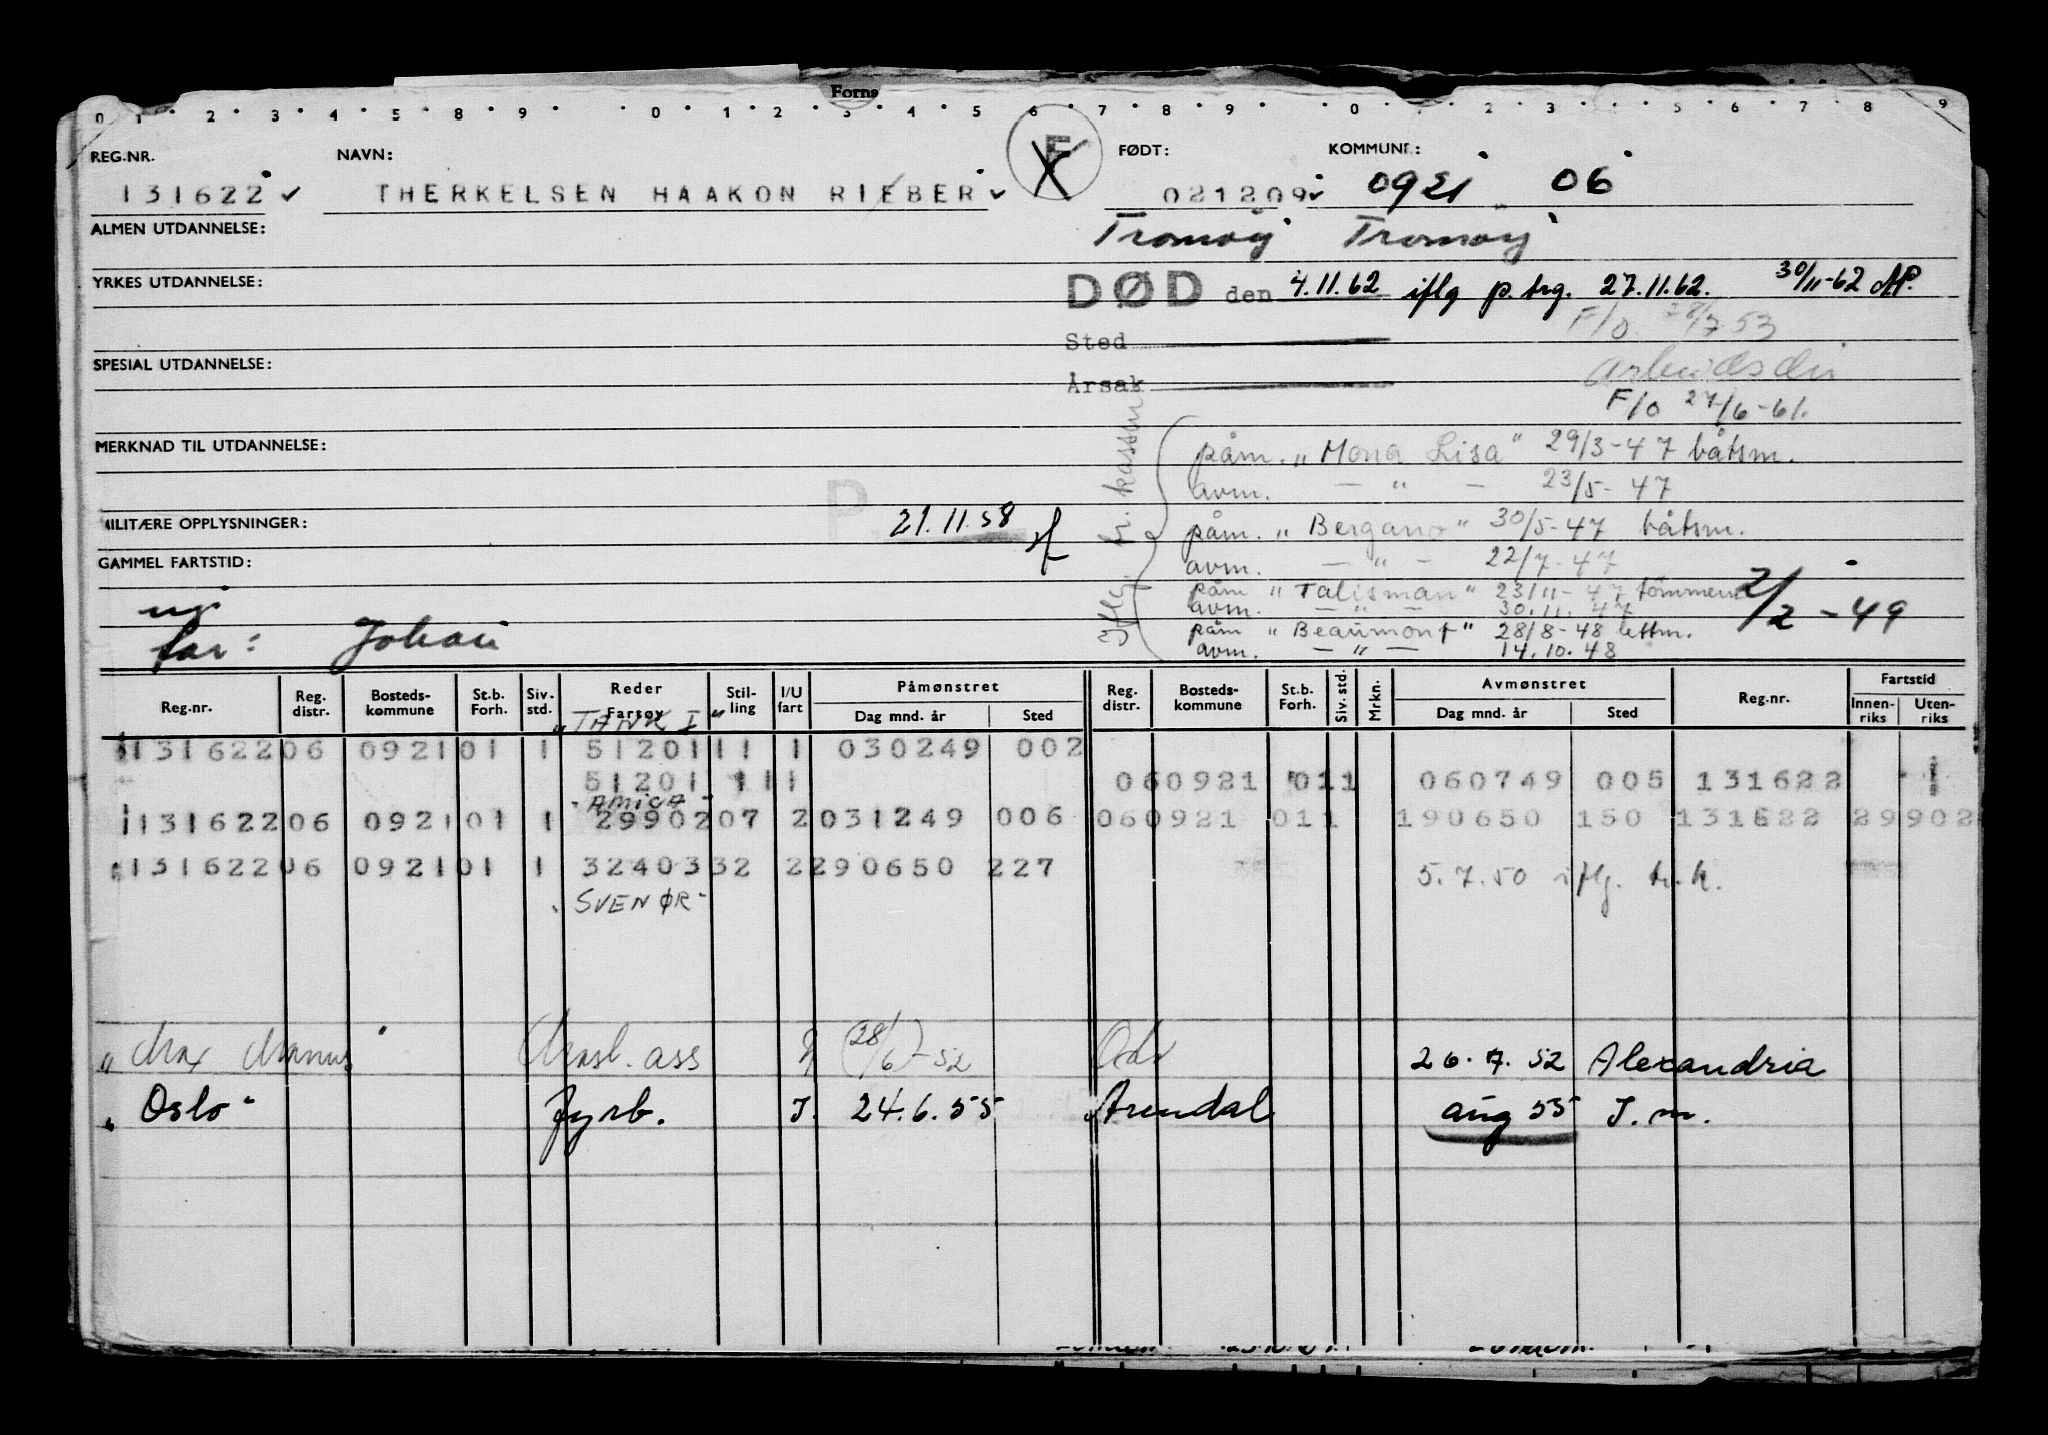 Forns
0 1 2 3 4 5 8 9 0 1 2 3 4 5 6 7 8 9 0 2 3 5 6 7 8 9
REG.NR. NAVN: F FØDT: KOMMUNE:
131622 THERKELSEN HAAKON RIEBER 021209 0921 06
ALMEN UTDANNELSE: Tromøy Tromøy
YRKES UTDANNELSE: DØD den 4.11.62 iflg p. trg. 27.11.62. 30/11-62 AP.
F/o 28/7 53
Sted
SPESIAL UTDANNELSE: Arbeidsdir
Årsak
F/o 27/6-61.
MERKNAD TIL UTDANNELSE: påm. „Mona Lisa" 29/3-47 båtsm.
avm. — " — 23/5-47
MILITÆRE OPPLYSNINGER: P. 21.11.58 påm. „Bergano" 30/5-47 båtsm.
GAMMEL FARTSTID: avm. — " — 22/7-47
påm „Talisman" 23/11-47 tømmerm
avm. — " — 30.11.47
påm „Beaumont" 28/8-48 lettm.
avm. — " — 14.10.48
Iflg. tr. kassen
2/2-49
far: Johan
Reg.nr. Reg. distr. Bosteds-kommune St.b. Forh. Siv. std. Reder Fartøy Stil-ling I/U fart Påmønstret Dag mnd. år Sted Reg. distr. Bosteds-kommune St.b. Forh. Siv. std. Mrkn. Avmønstret Dag mnd. år Sted Reg.nr. Fartstid Innen-riks Uten-riks
„TANK I"
131622 06 0921 01 1 51201 11 1 030249 002
51201 11 1 060921 011 060749 005 131622 1
-AMICA-
131622 06 0921 01 1 29902 07 2 031249 006 060921 011 190650 150 131622 29902
131622 06 0921 01 1 32403 32 2 290650 227 5.7.50 iflg. tr.k.
SVENØR-
„Max Manus" Mask. ass (28/6)-52 26.7.52 Alexandria
„Oslo" fyrb. I. 24.6.55 Arendal aug 55 I.m.